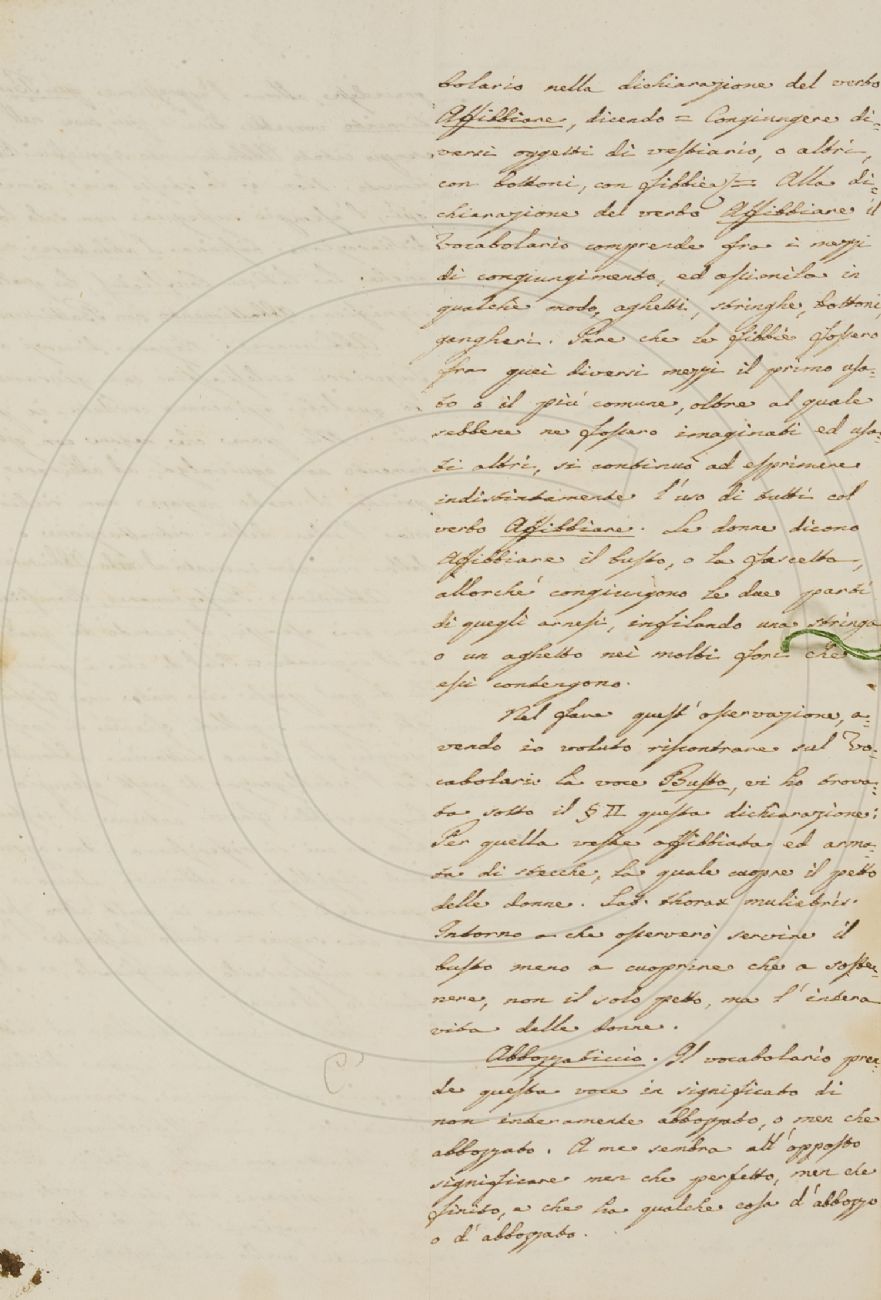 bolario nella dichiarazione del verbo
Affibbiare, dicendo = Congiungere di=
versi oggetti di vestiario, o altri,
con bottoni, con fibbie = Alla di=
chiarazione del verbo Affibbiare il
Vocabolario comprende fra i mezzi
di congiungimento, ed assimila in
qualche modo, aghetti, stringhe, bottoni,
gangheri. Pare che le fibbie fossero
fra quei diversi mezzi il primo usa=
to o il più comune, oltre al quale
sebbene ne fossero imaginati ed usa=
ti altri, si continuò ad esprimere
indistintamente l'uso di tutti col
verbo Affibbiare. Le donne dicono
Affibbiare il busto, o la fascetta,
allorché congiungono le due parti
di quegli arnesi, infilando una stringa
o un aghetto nei molti fori che
essi contengono.
Nel fare quest'osservazione, a=
vendo io voluto riscontrare sul Vo=
cabolario la voce Busto, vi ho trova=
ta sotto il § II questa dichiarazione:
Per quella veste affibbiata ed arma=
ta di stecche, la quale cuopre il petto
delle donne. Lat. thorax muliebris.
Intorno a che osserverò servire il
busto meno a cuoprire che a soste=
nere, non il solo petto, ma l'intera
vita delle donne.
Abbozzaticcio. Il vocabolario pren=
de questa voce in significato di
non interamente abbozzato, o men che
abbozzato. A me sembra all'opposto
significare men che perfetto, men che
finito, e che ha qualche cosa d'abbozzo
o d'abbozzato.